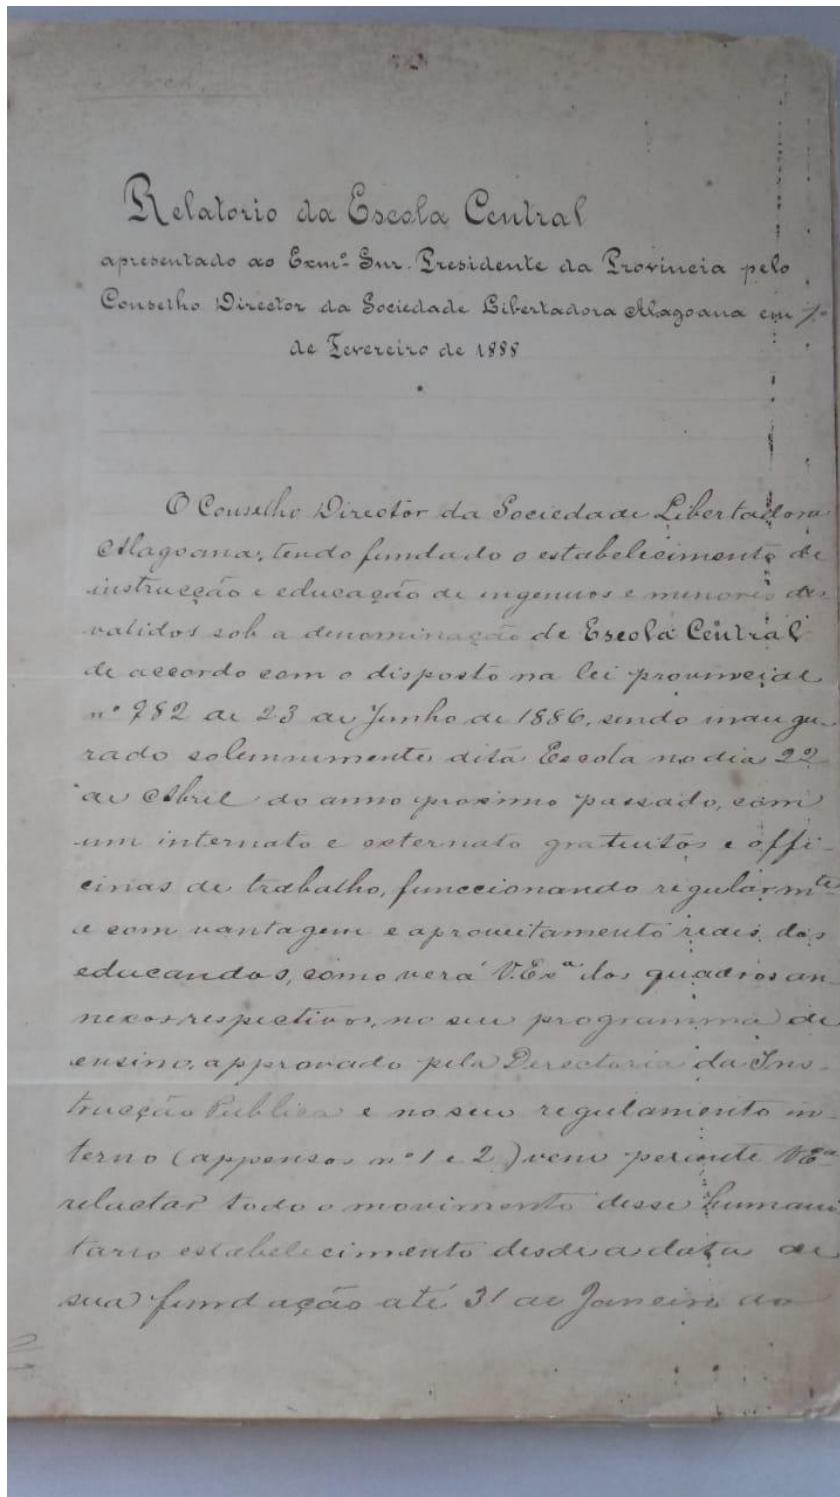 Relatorio da Escola Central
apresentado ao Exmº Snr. Presidente da Provincia pelo
Conselho Director da Sociedade Libertadora Alagoana em 1º
de Fevereiro de 1888
O Conselho Director da Sociedade Libertadora
Alagoana, tendo fundado o estabelecimento de
instrucção e educação de ingenuos e menores des-
validos sob a denominação de Escola Central
de accordo com o disposto na lei provincial
nº 982 de 23 de Junho de 1886, sendo inaugu-
rado solemnimente dita Escola no dia 22
de Abril do anno proximo passado, com
um internato e externato gratuitos e offi-
cinas de trabalho, funccionando regularmte
e com vantagem e aproveitamento reaes dos
educandos, como verá V. Exª dos quadros an-
nexos respectivos, no seu programma de
ensino, approvado pela Directoria da Ins-
trucção Publica e no seu regulamento in-
terno (appensos nº 1 e 2) vem perante V. Eª
relactar todo o movimento desse humani
tario estabelecimento desde a data de
sua fundação até 31 de Janeiro do